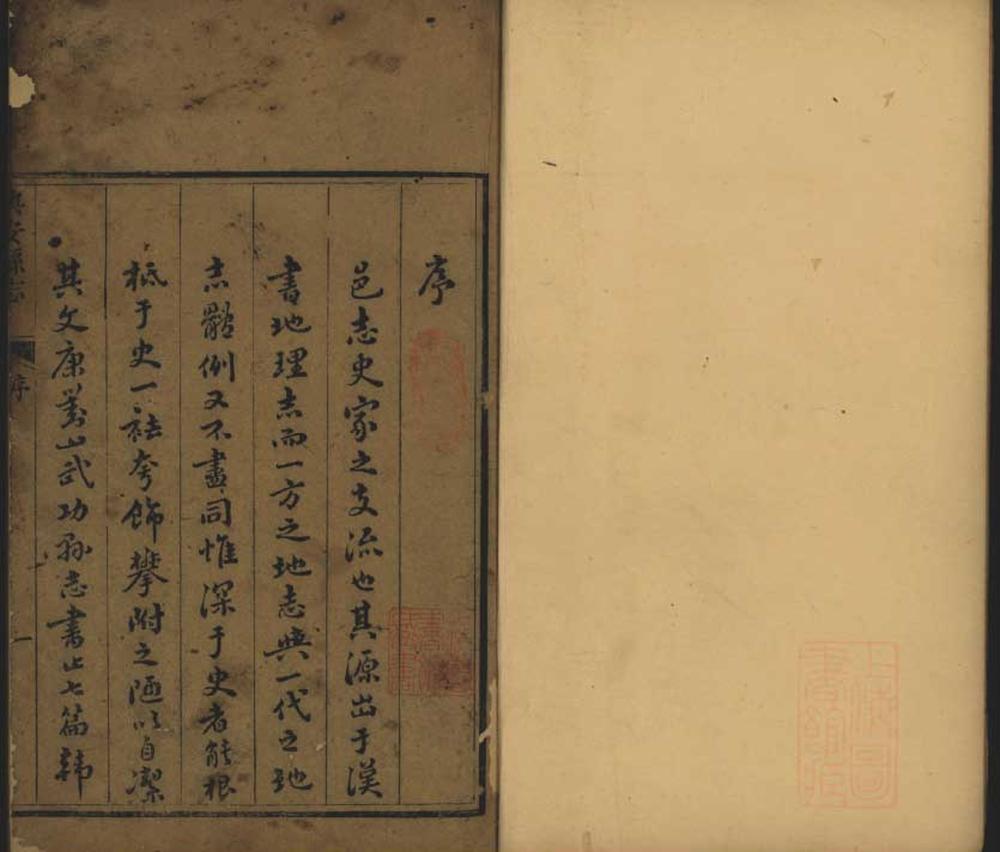 序
邑志史家之支流也其源出于漢
書地理志而一方之地志與一代之地
志體例又不盡同惟深于史者能根
柢于史一祛夸飾攀附之陋以自潔
其文康對山武功縣志書止七篇韓
安縣志
序
一
上海圖書館藏